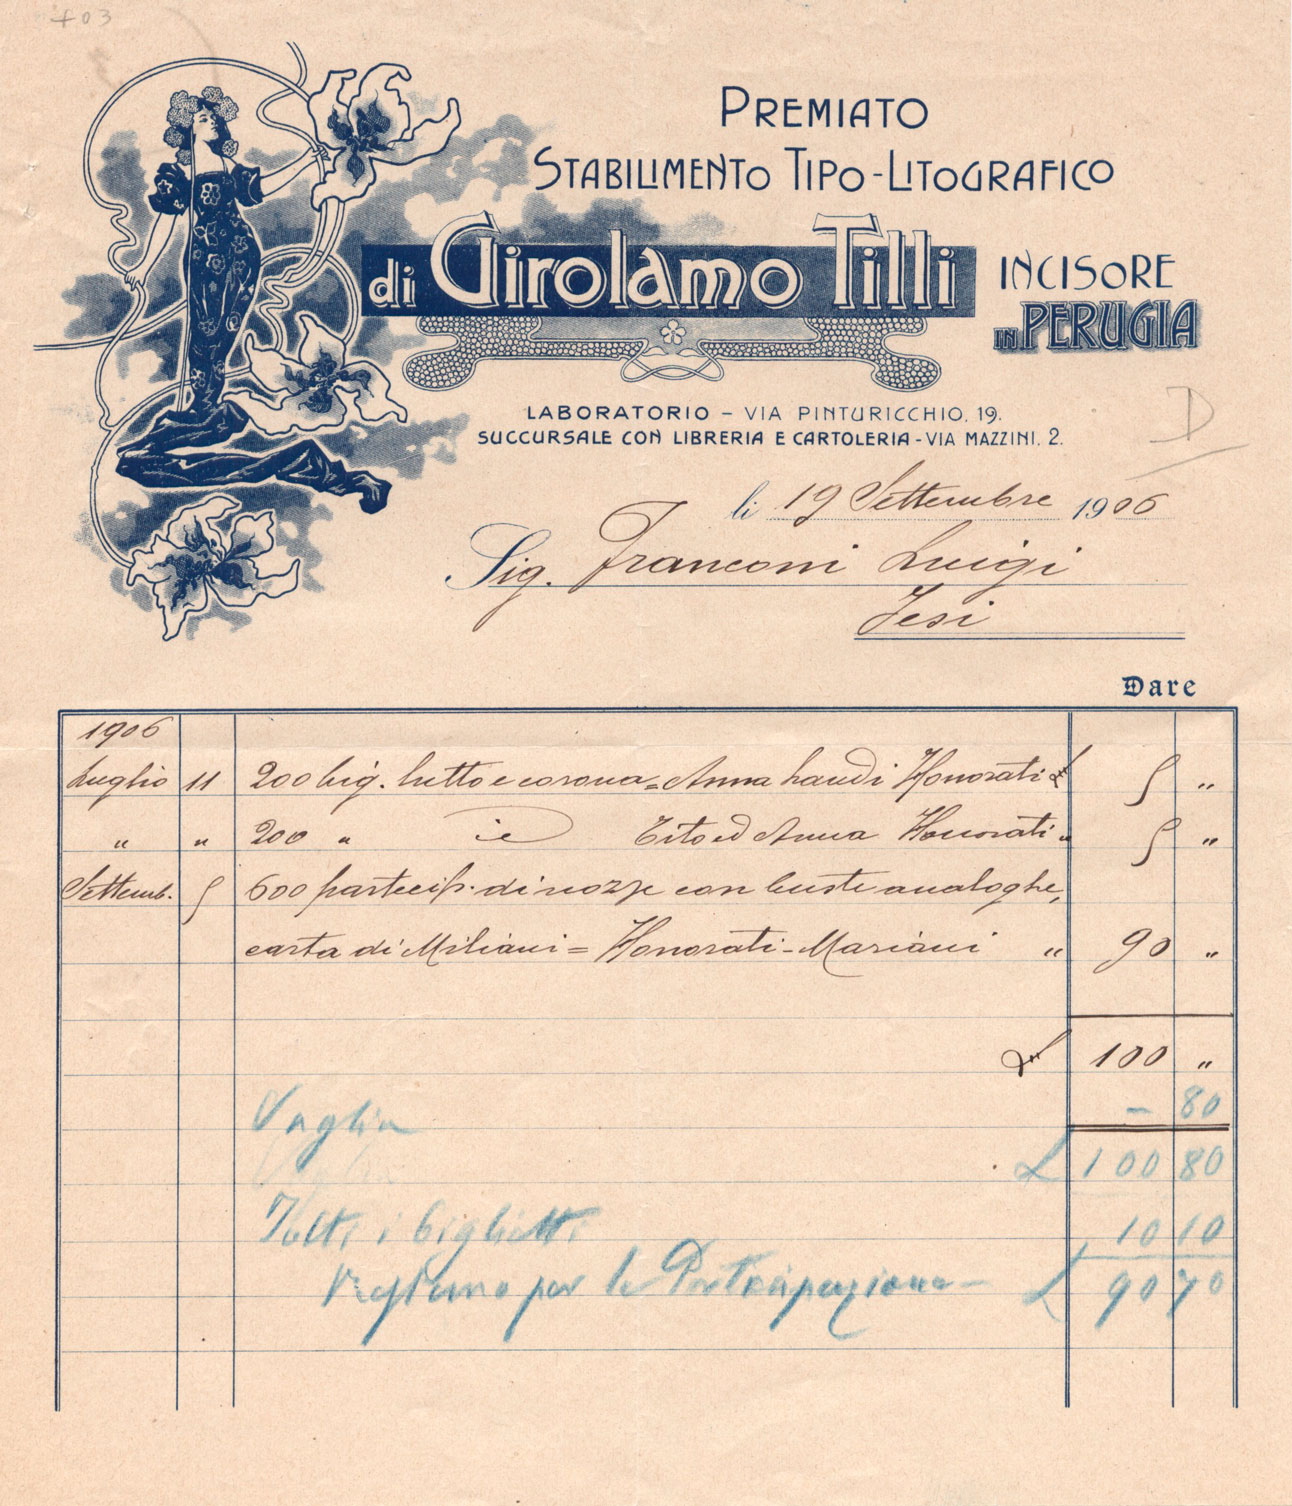 403
PREMIATO
STABILIMENTO TIPO-LITOGRAFICO
di Girolamo Tilli INCISORE
IN PERUGIA
LABORATORIO – VIA PINTURICCHIO, 19.
SUCCURSALE CON LIBRERIA E CARTOLERIA - VIA MAZZINI, 2.
D
li 19 Settembre 1906
Sig. Franconi Luigi
Jesi
Dare
1906
Luglio 11 200 big. lutto e corona = Anna Honorati £ 5 "
" " 200 " id Tito ed Anna Honorati " 5 "
Settemb. 5 600 partecip. di nozze con buste analoghe,
carta di Miliani = Honorati - Mariani " 90 "
£ 100 "
Vaglia – 80
£ 100 80
Tolti i biglietti 10 10
Restano per le Partecipazione – £ 90 70